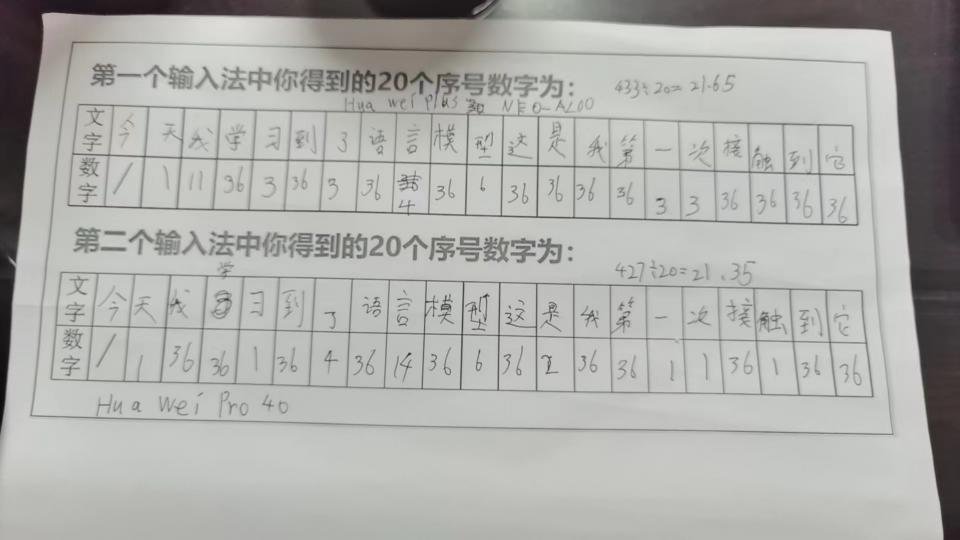 第一个输入法中你得到的20个序号数字为： 433÷20=21.65
Hua wei plus NEO-AL00
文字 今 天 我 学 习 到 了 语 言 模 型 这 是 我 第 一 次 接 触 到 它
数字 / 1 11 36 3 36 3 36 4 36 6 36 36 36 36 3 3 36 36 36 36
第二个输入法中你得到的20个序号数字为： 427÷20=21.35
学
文字 今 天 我 习 到 了 语 言 模 型 这 是 我 第 一 次 接 触 到 它
数字 / 1 36 36 1 36 4 36 14 36 6 36 1 36 36 1 1 36 1 36 36
Hua Wei Pro 40